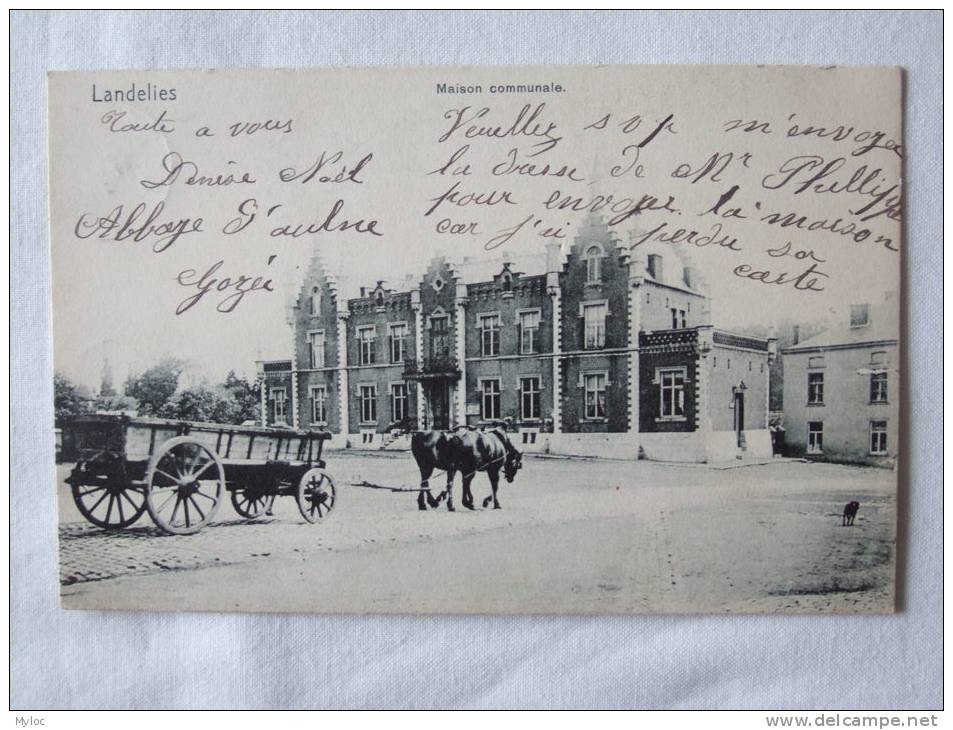 Landelies
Maison communale.
Toute a vous
Denise Noël
Abbaye d'aulne
Gozée
Veuillez s v p m'envoyer
la dresse de Mr Phillippe
pour envoyer la maison
car j'ai perdu sa
carte
Myloc
www.delcampe.net